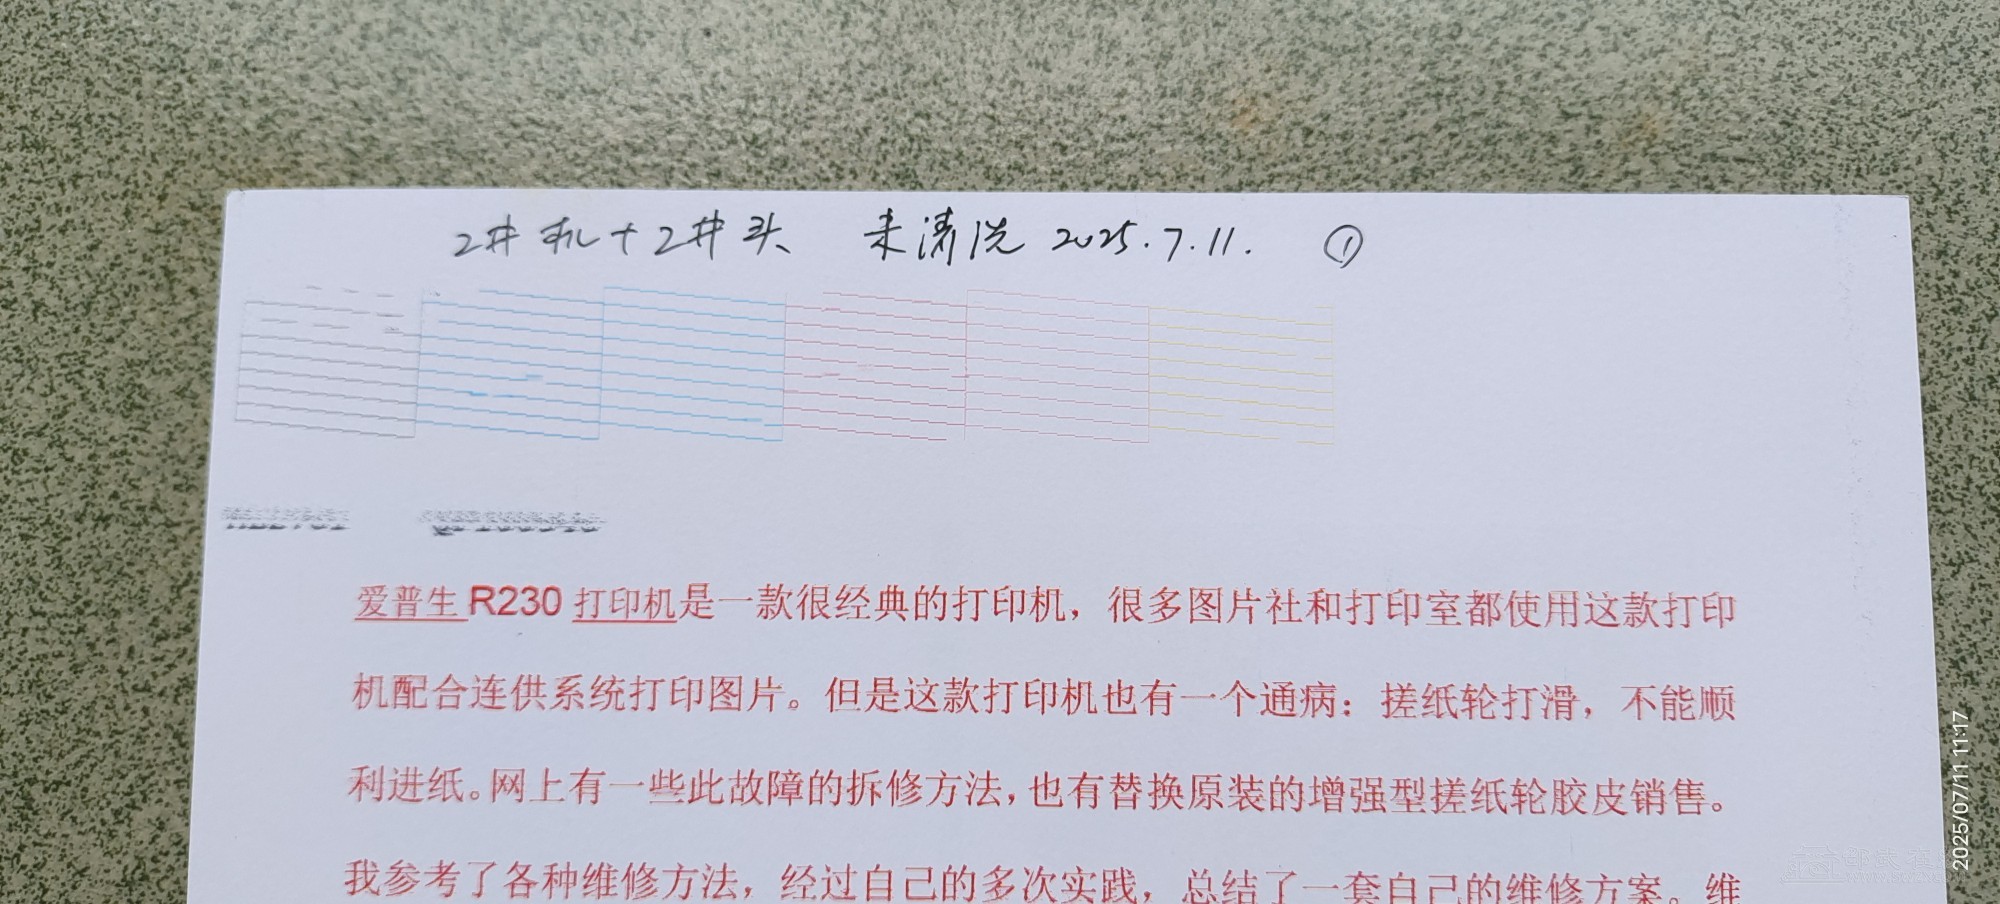 2井机+2井头 未清洗 2025.7.11. ①
爱普生R230打印机是一款很经典的打印机，很多图片社和打印室都使用这款打印
机配合连供系统打印图片。但是这款打印机也有一个通病：搓纸轮打滑，不能顺
利进纸。网上有一些此故障的拆修方法，也有替换原装的增强型搓纸轮胶皮销售。
我参考了各种维修方法，经过自己的多次实践，总结了一套自己的维修方案。维
2025/07/11 11:17